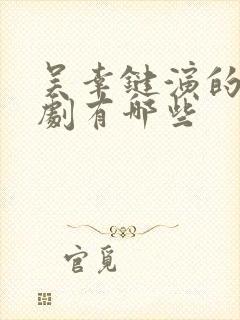 吴幸键演的
剧有哪些
官觅